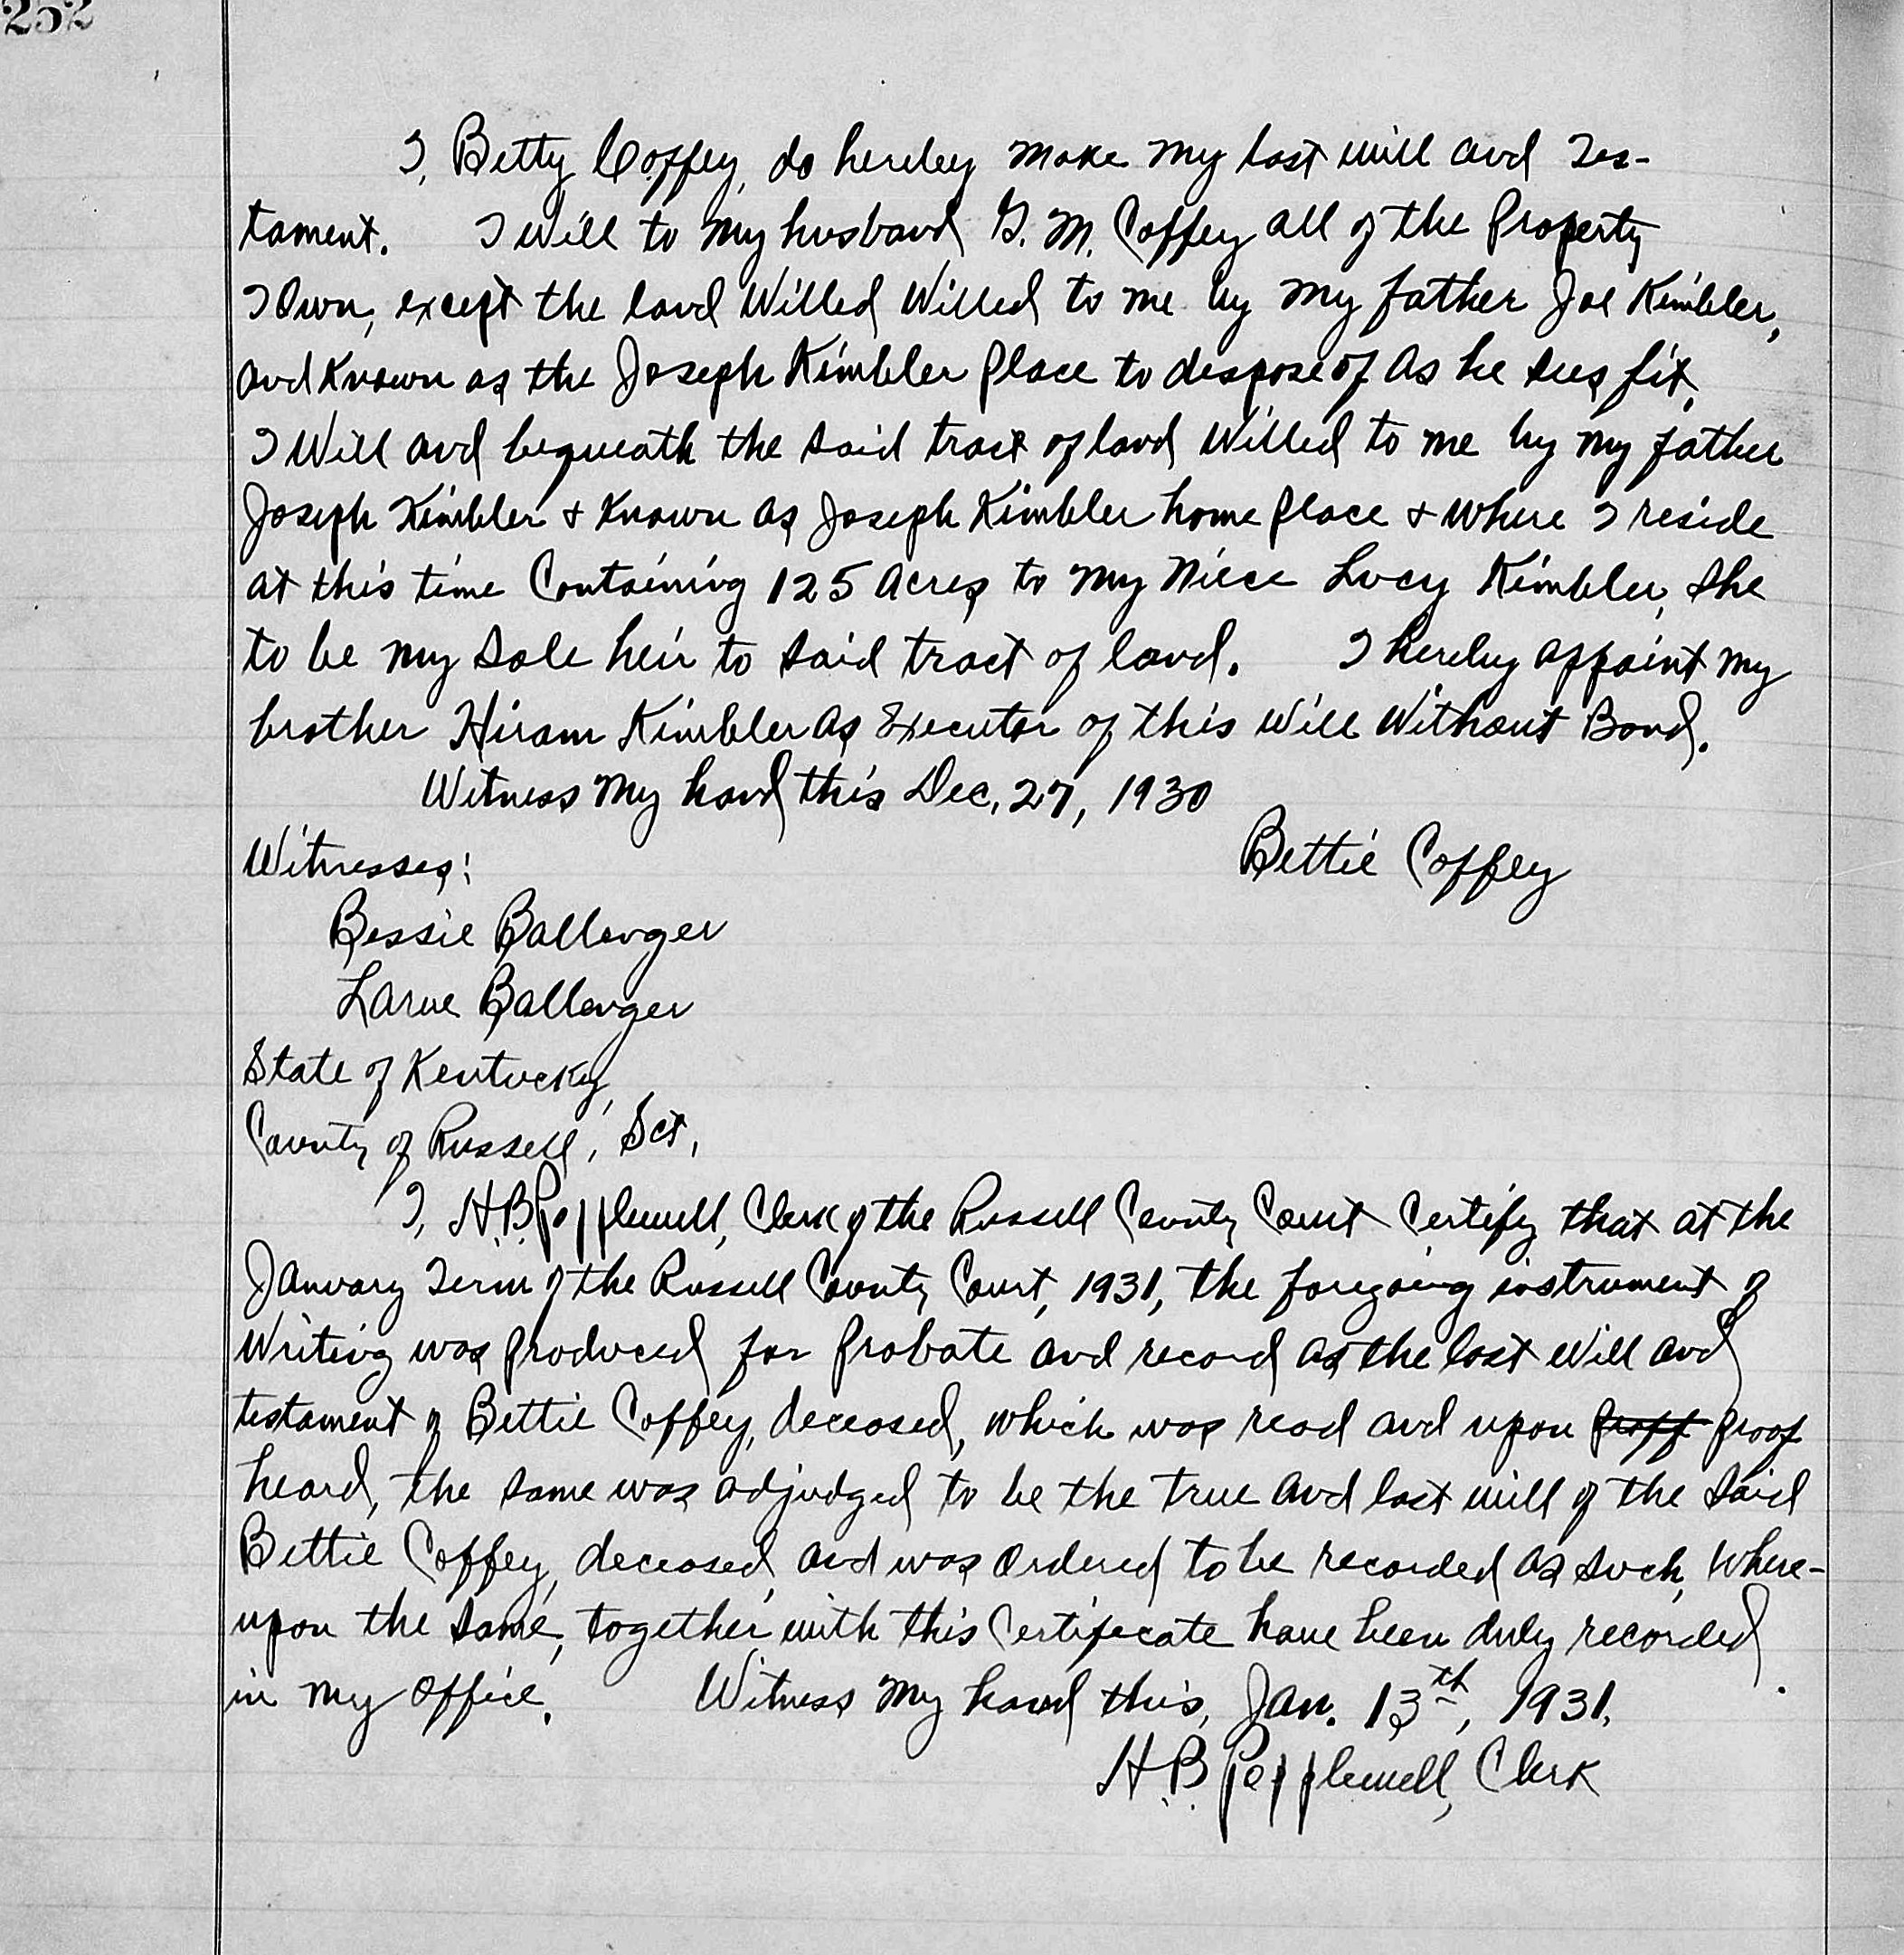 252
I, Betty Coffey, do hereby make my last will and Tes-
tament. I Will to my husband G. M. Coffey all of the Property
I Own, except the land Willed Willed to me by my father Joe Kimbler,
and Known as the Joseph Kimbler place to dispose of as he sees fit.
I Will and bequeath the said tract of land Willed to me by my father
Joseph Kimbler & Known as Joseph Kimbler home place & where I reside
at this time Containing 125 acres to my Niece Lucy Kimbler, she
to be my sole heir to said tract of land. I hereby appoint my
brother Hiram Kimbler as Executor of this Will Without Bond.
Witness my hand this Dec, 27, 1930
Bettie Coffey
Witnesses:
Bessie Ballenger
Larue Ballenger
State of Kentucky,
County of Russell, Sct,
I, H.B. Popplewell, Clerk of the Russell County Court Certify that at the
January Term of the Russell County Court, 1931, the foregoing instrument of
Writing was produced for probate and record as the last Will and
testament of Bettie Coffey, deceased, which was read and upon proff proof
heard, the same was adjudged to be the true and last will of the said
Bettie Coffey, deceased, and was Ordered to be recorded as such, Where-
upon the same, together with this Certificate have been duly recorded
in my office. Witness my hand this, Jan. 13th, 1931.
H.B. Popplewell, Clerk